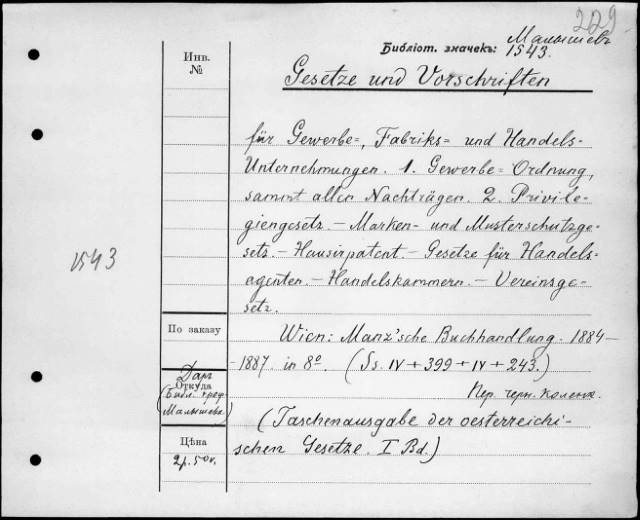 229
Малышевъ
Библіот. значекъ: 1543.
Инв.
№
Gesetze und Vorschriften
für Gewerbe-, Fabriks- und Handels-
Unternehmungen. 1. Gewerbe-Ordnung,
sammt allen Nachträgen. 2. Privile-
giengesetz. – Marken- und Musterschutzge-
setz. – Hausirpatent. – Gesetze für Handels-
agenten. – Handelskammern. – Vereinsge-
setz.
1543
По заказу
Wien: Manz'sche Buchhandlung. 1884–
-1887. in 8º. (Ss. IV + 399 + IV + 243.)
Даръ
Откуда
(Библ. проф.
Малышева)
Пер. черн. коленк.
(Taschenausgabe der oesterreichi-
schen Gesetze. I Bd.)
Цѣна
2 р. 50 к.